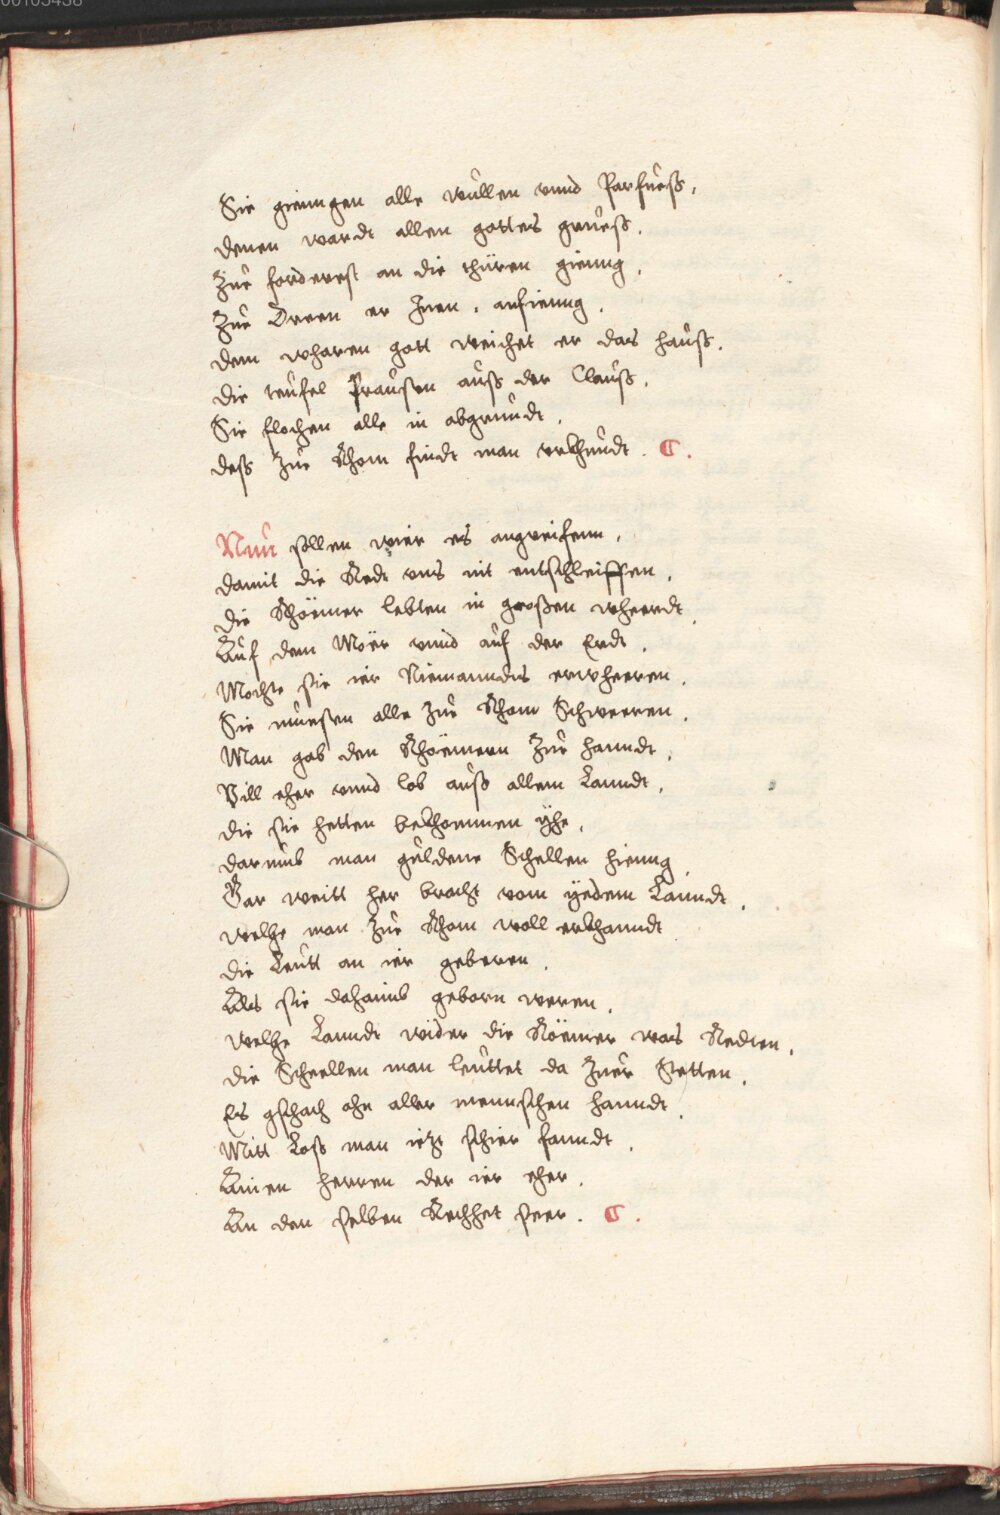 Sie giengen alle wullen vnnd Parfueß,
denen wardt allen gottes grueß.
Zue forderest an die thüren gieng,
Zue Orren er Inen, anfieng.
dem wharen gott weichet er das hauß.
die teufel Prausen auß der Clauß.
Sie flochen alle in abgrundt.
deß zue Rhom findt man vrkhundt. C.
Nun sollen wier es angreifenn,
damit die Redt vns nit entschleiffen.
die Rhömer lebten in großen wheerdt.
Auf dem Moer vnnd auf der Erdt.
Mochte sie ier Niemanndts erwheeren.
Sie muesen alle zue Rhom Schweeren.
Man gab den Rhömern zue hanndt,
Vill eher vnnd lob auß allem Lanndt,
die sie hetten bekhommen yhe,
darumb man guldene Schellen hieng
Gar weitt her bracht vom yedem Lanndt,
welhe man zue Rhom woll erkhanndt
die Leutt an ier geberen.
Als sie dahaimb geborn weren.
welhe Lanndt wider die Römer was Redten,
die Scheellen man leuttet da zuer Stetten.
Es gschach ohn aller mennschen hanndt.
Mitt Loß man iezt schier fanndt.
Ainen herren der ier eher.
An den selben Rechhet seer. C.